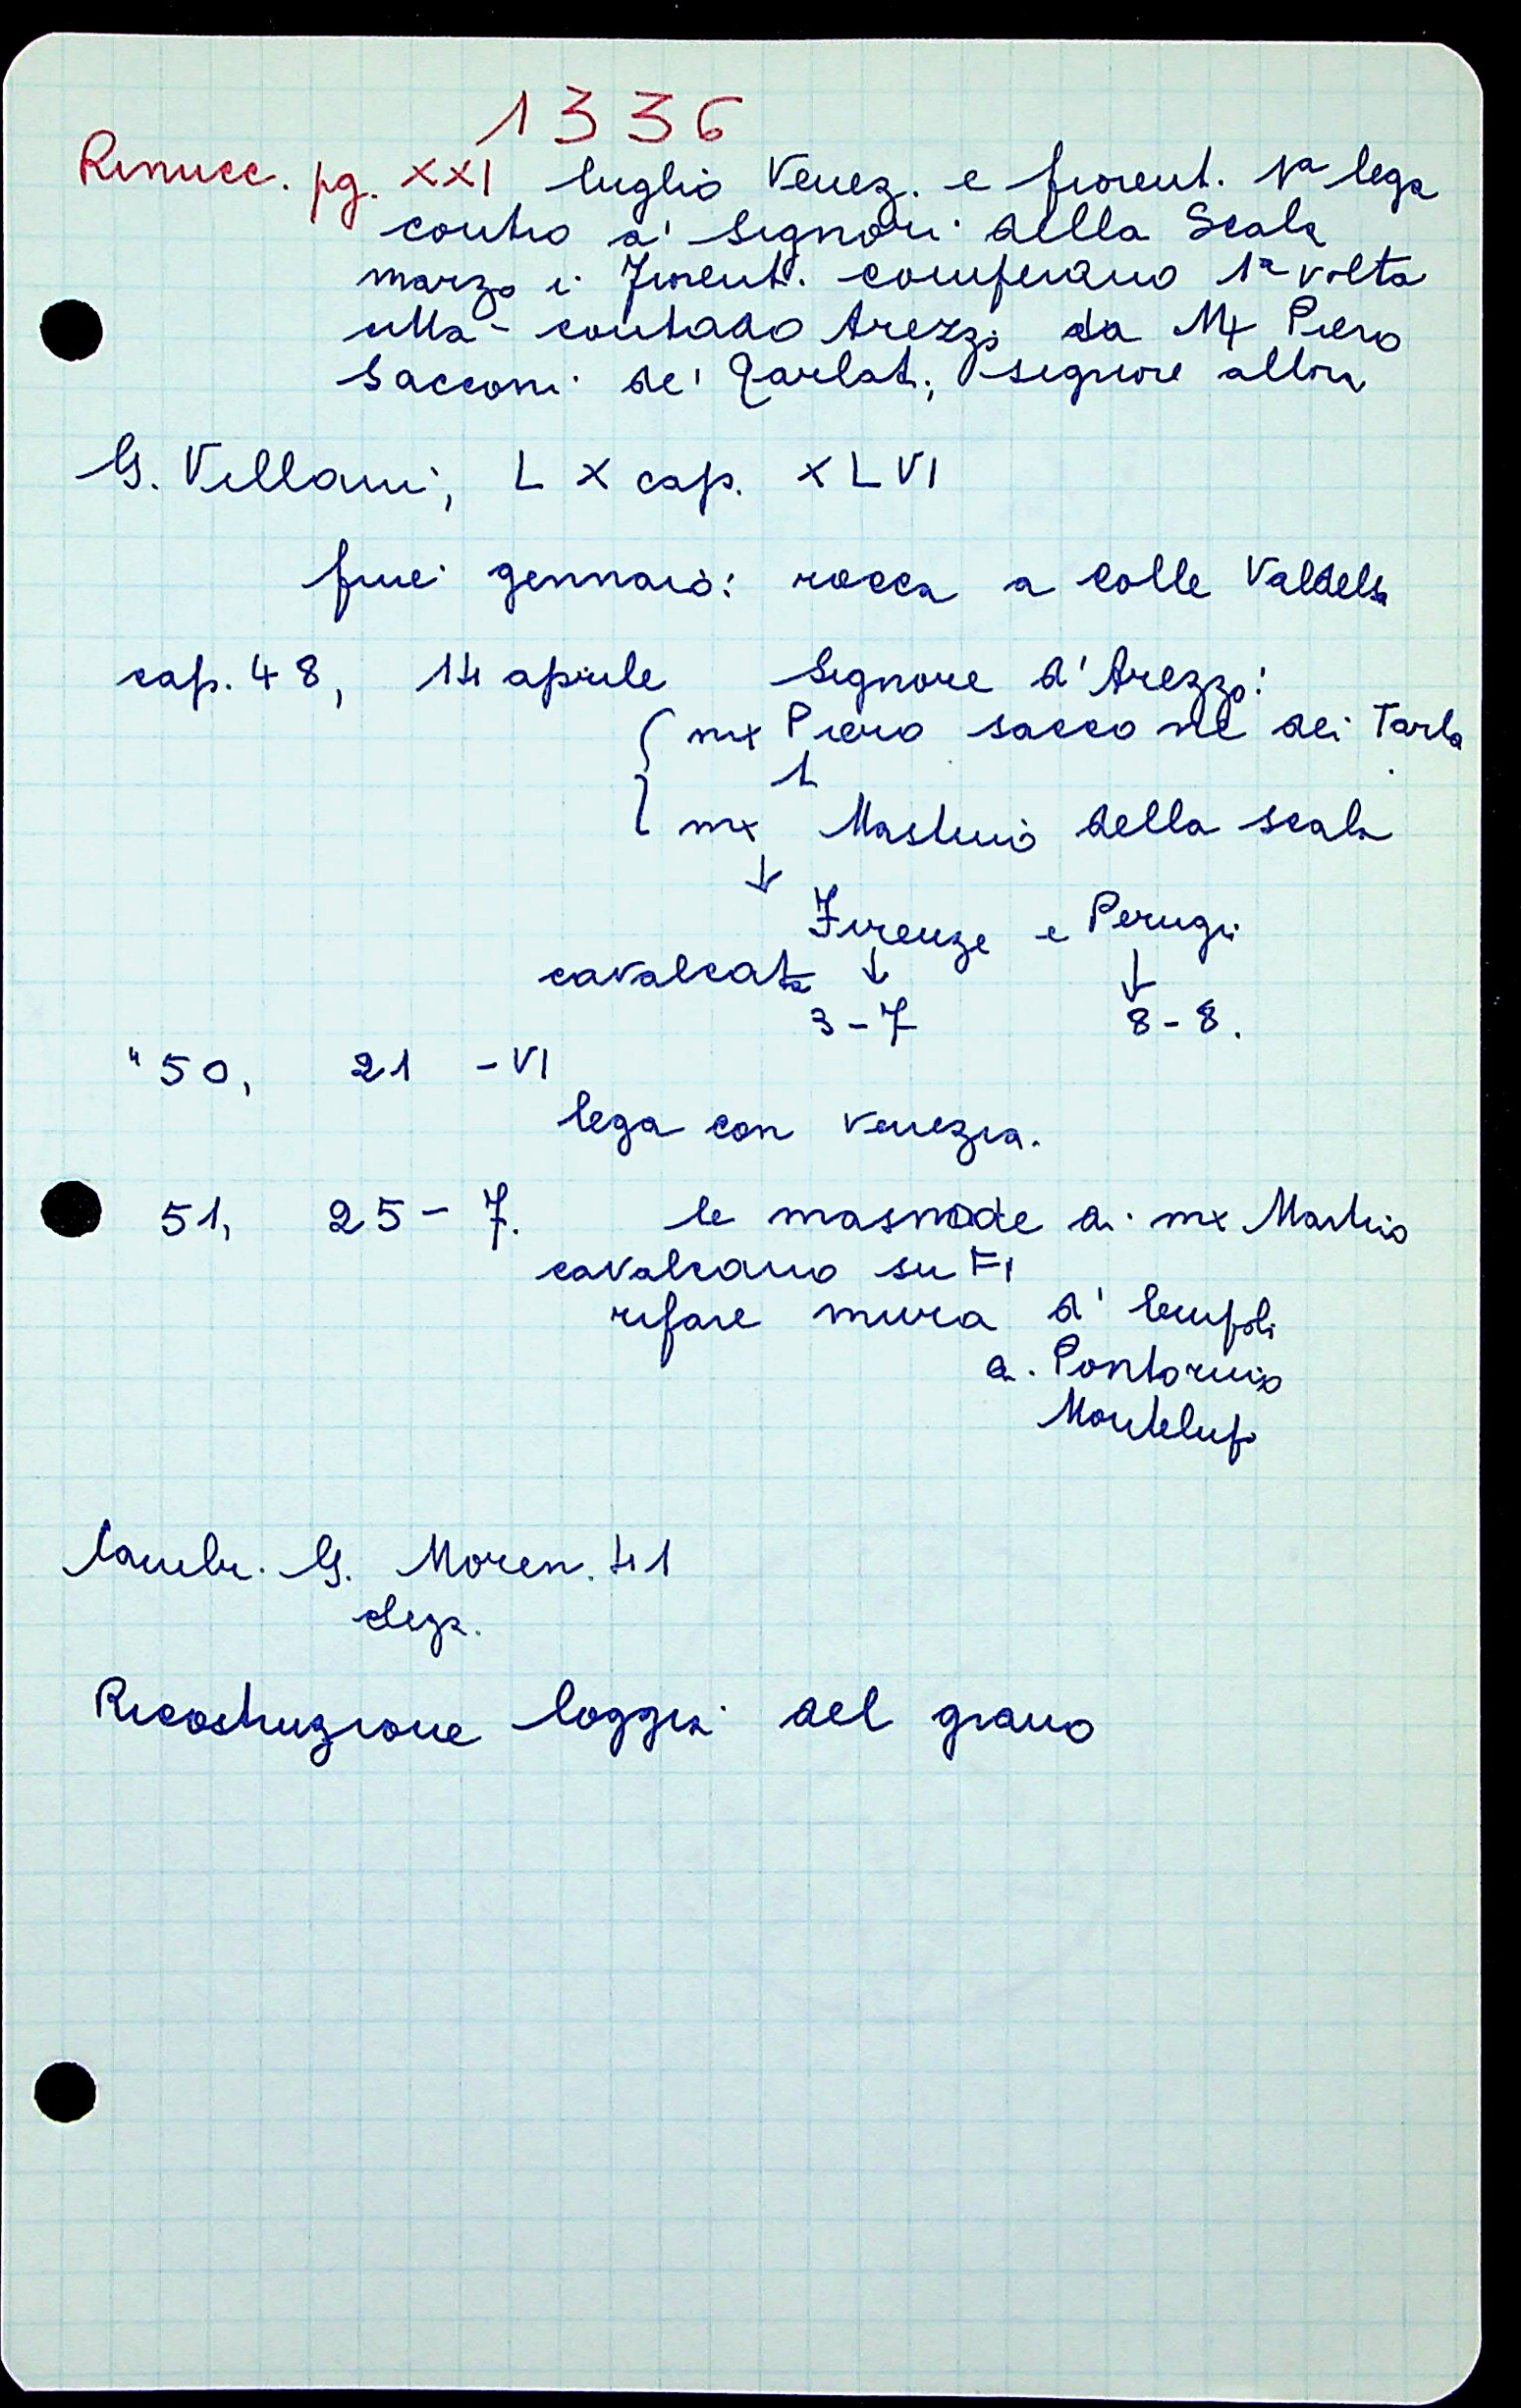 1336
Rinucc. pg. XXI luglio Venez. e fiorent. 1ª lega
contro a' Signori della Scala
marzo i Fiorent. comperano 1ª volta
città - contado Arezzo da Mx Piero
Sacconi de' Tarlati, signore allora
G. Villani, L X cap. XLVI
fine gennaio: rocca a Colle Valdelsa
cap. 48, 14 aprile Signore d'Arezzo:
mx Piero saccone dei Tarla
1
mx Mastino della scala
↓
Firenze e Perugi
cavalcata ↓ ↓
3-7 8-8.
" 50, 21 - VI
lega con Venezia.
51, 25-7. le masnade di mx Mastino
cavalcano su FI
rifare mura d' Empoli
a. Pontormo
Montelupo
Cambi. G. Moren. 41
Ricostruzione loggia del grano